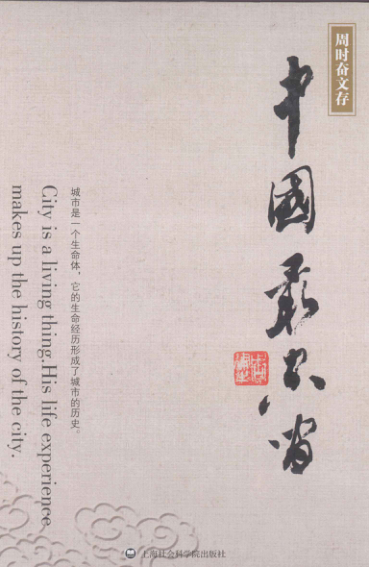 周时奋文存
中國
城市是一个生命体，它的生命经历形成了城市的历史。
City is a living thing.His life experience
makes up the history of the city.
上海社会科学院出版社